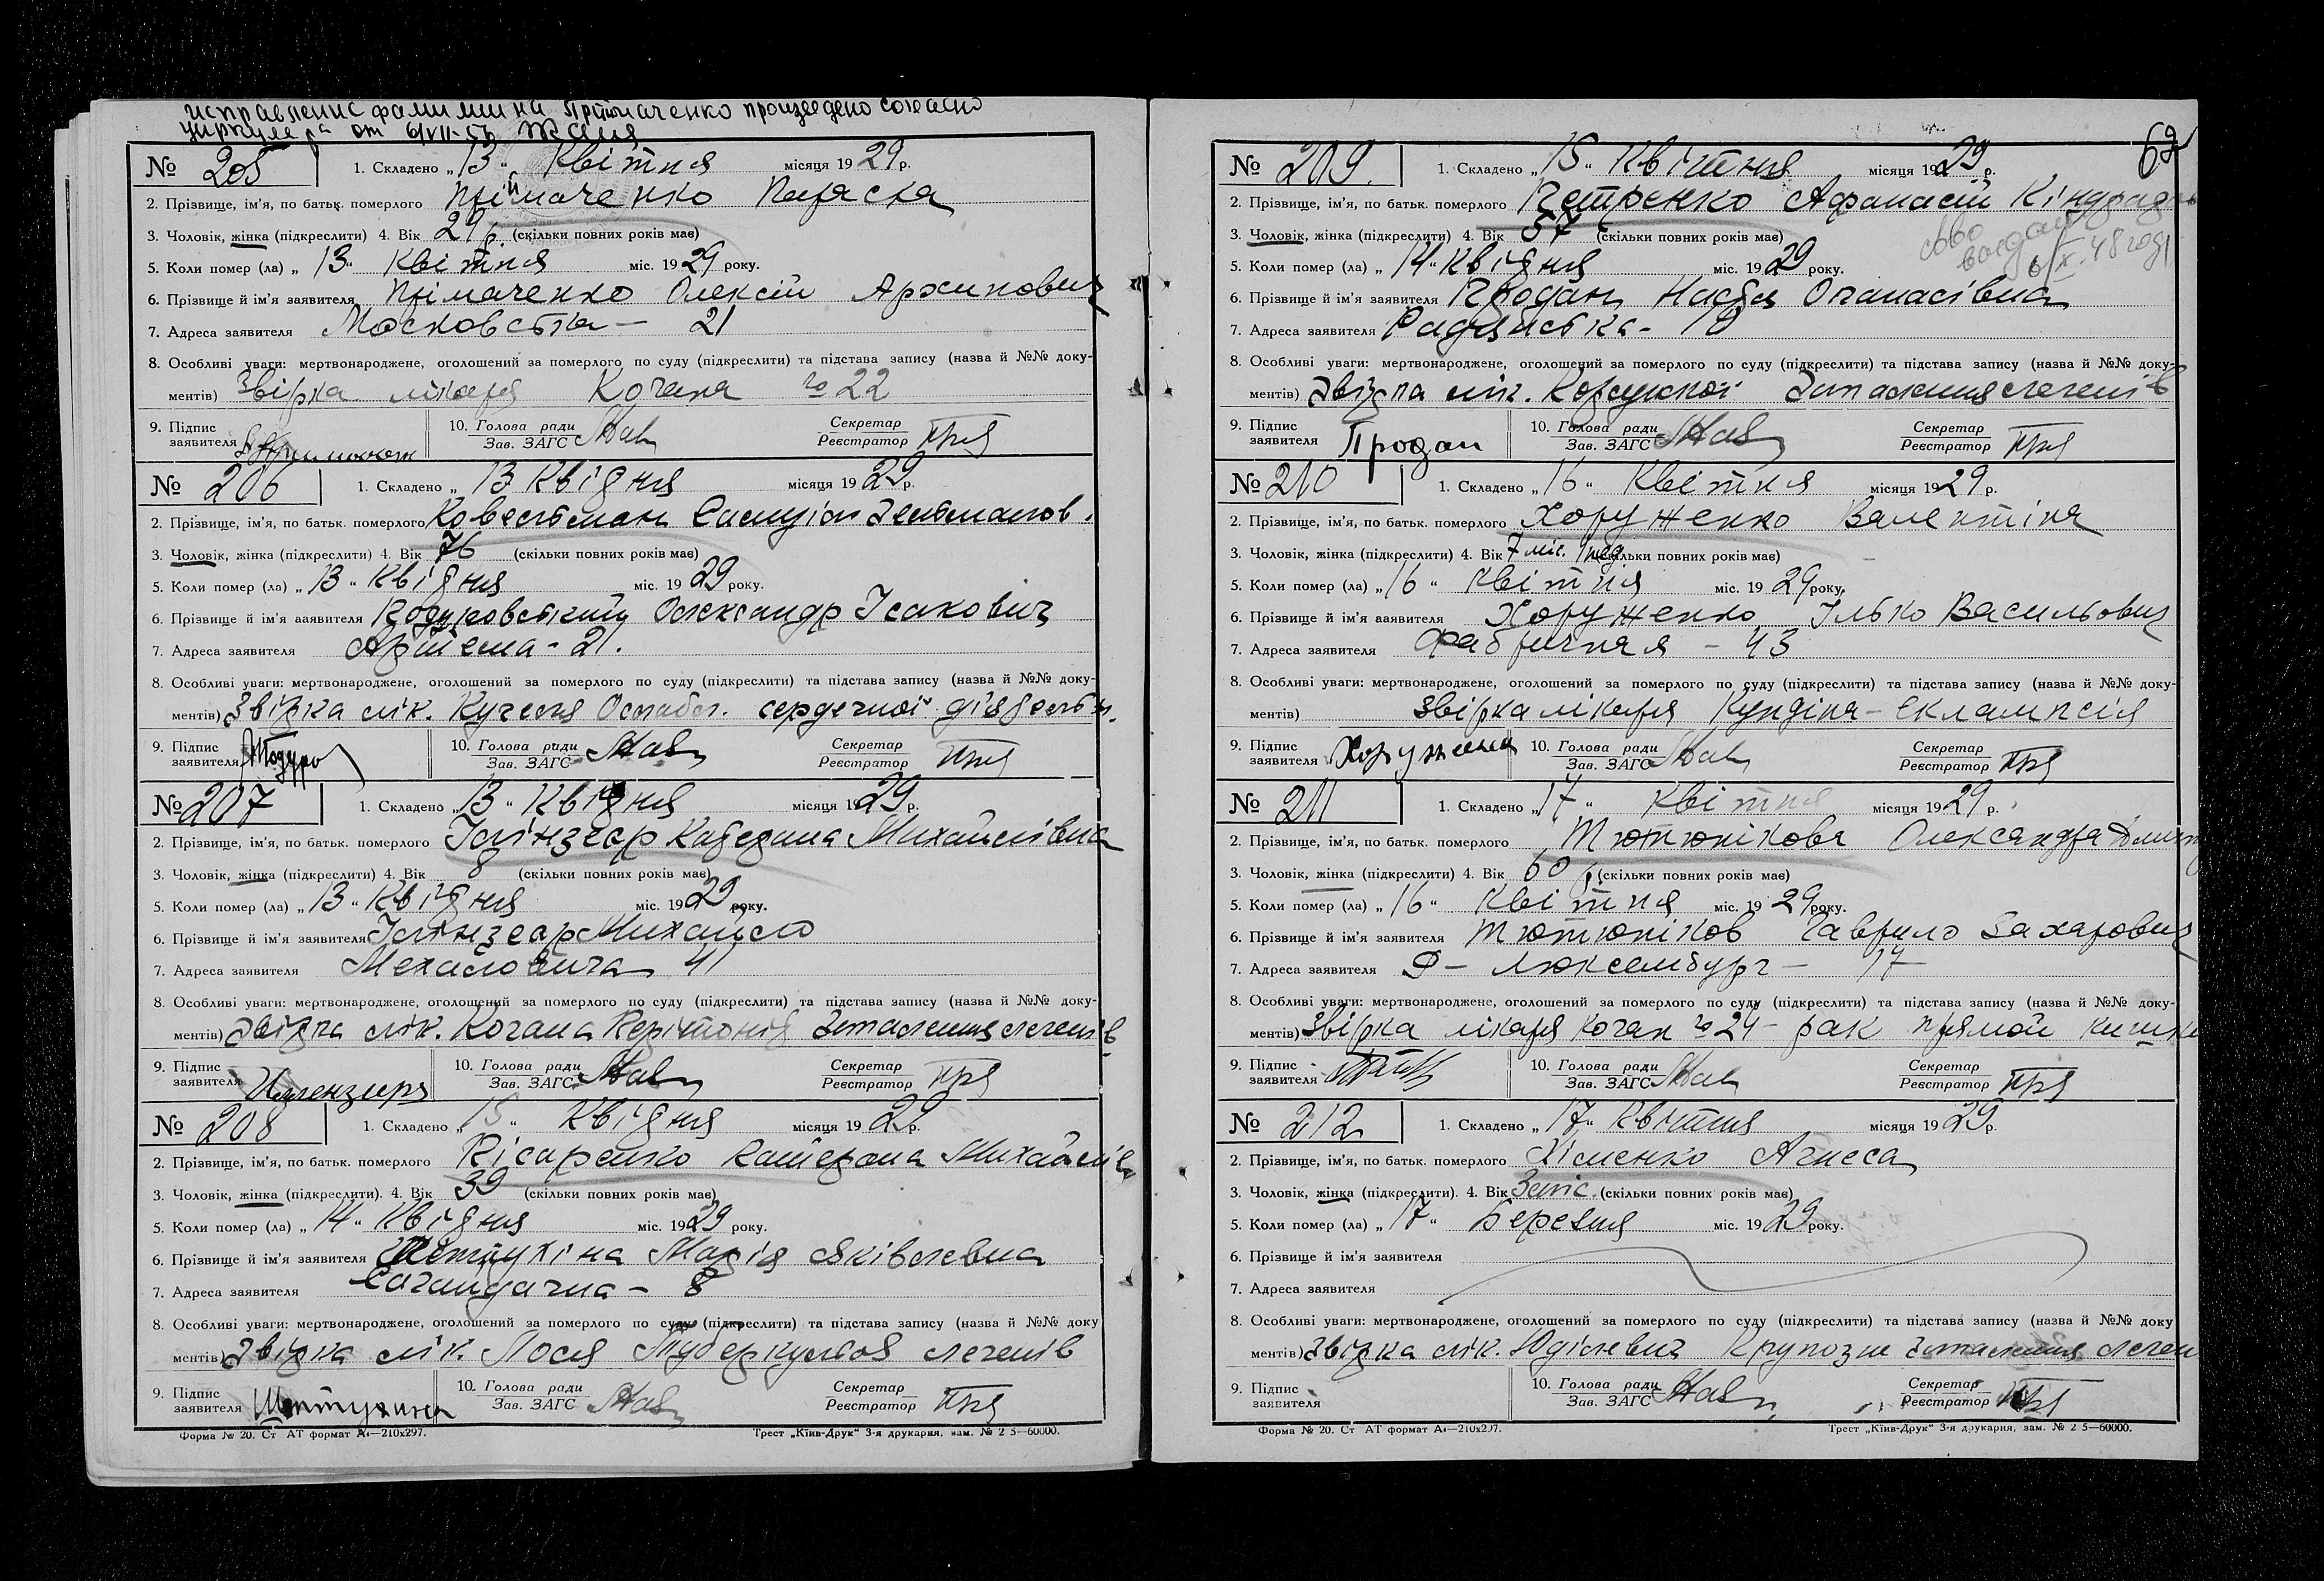 исправление фамилии на Приймаченко произведено согласно
циркуляра от 6/VII-56
№ 205 1. Складено „13“ Квітня місяця 1929 р.
2. Прізвище, ім'я, по батьк. померлого Пріймаченко Параска
3. Чоловік, жінка (підкреслити) 4. Вік 29 р. (скільки повних років має)
5. Коли помер (ла) „13“ Квітня міс. 1929 року.
6. Прізвище й ім'я заявителя Прімаченко Олексій Архипович
7. Адреса заявителя Московська - 21
8. Особливі уваги: мертвонароджене, оголошений за померлого по суду (підкреслити) та підстава запису (назва й №№ доку-
ментів) Звірка лікаря Кочана № 22
9. Підпис заявителя
10. Голова ради Зав. ЗАГС
Секретар Реєстратор
№ 206 1. Складено „13 Квітня місяця 1929 р.
2. Прізвище, ім'я, по батьк. померлого Ковельман
3. Чоловік, жінка (підкреслити) 4. Вік 76 (скільки повних років має)
5. Коли помер (ла) „13“ Квітня міс. 1929 року.
6. Прізвище й ім'я заявителя Олександр Ісакович
7. Адреса заявителя Артема - 21.
8. Особливі уваги: мертвонароджене, оголошений за померлого по суду (підкреслити) та підстава запису (назва й №№ доку-
ментів) Звірка лік. сердечної
9. Підпис заявителя
10. Голова ради Зав. ЗАГС
Секретар Реєстратор
№ 207 1. Складено „13“ Квітня місяця 1929 р.
2. Прізвище, ім'я, по батьк. померлого Катерина Михайлівна
3. Чоловік, жінка (підкреслити) 4. Вік 8 (скільки повних років має)
5. Коли помер (ла) „13“ Квітня міс. 1929 року.
6. Прізвище й ім'я заявителя Михайло
7. Адреса заявителя 41
8. Особливі уваги: мертвонароджене, оголошений за померлого по суду (підкреслити) та підстава запису (назва й №№ доку-
ментів) Звірка лік. Кочана Запалення легенів
9. Підпис заявителя
10. Голова ради Зав. ЗАГС
Секретар Реєстратор
№ 208 1. Складено „15“ Квітня місяця 1929 р.
2. Прізвище, ім'я, по батьк. померлого Пісаренко Катерина
3. Чоловік, жінка (підкреслити). 4. Вік 39 (скільки повних років має)
5. Коли помер (ла) „14“ Квітня міс. 1929 року.
6. Прізвище й ім'я заявителя Шептухіна Марія Яківлевна
7. Адреса заявителя Сагайдачна - 8
8. Особливі уваги: мертвонароджене, оголошений за померлого по суду (підкреслити) та підстава запису (назва й №№ доку
ментів) Звірка лік. Лося Туберкульоз легенів
9. Підпис заявителя Шептухина
10. Голова ради Зав. ЗАГС
Секретар Реєстратор
Форма № 20. Ст АТ формат А4—210x297. Трест „Київ-Друк“ 3-я друкарня, зам. № 2 5—60000.
№ 209. 1. Складено „15“ Квітня місяця 1929 р.
2. Прізвище, ім'я, по батьк. померлого Петренко Афанасій
3. Чоловік, жінка (підкреслити) 4. Вік 57 (скільки повних років має)
5. Коли помер (ла) „14“ Квітня міс. 1929 року.
6. Прізвище й ім'я заявителя Продан Настя Опанасівна
7. Адреса заявителя Радянська - 10
8. Особливі уваги: мертвонароджене, оголошений за померлого по суду (підкреслити) та підстава запису (назва й №№ доку-
ментів) Звірка лік. Запалення легенів
9. Підпис заявителя Продан
10. Голова ради Зав. ЗАГС
Секретар Реєстратор
№ 210 1. Складено „16“ Квітня місяця 1929 р.
2. Прізвище, ім'я, по батьк. померлого Хоруженко Валентіна
3. Чоловік, жінка (підкреслити) 4. Вік 7 міс. (скільки повних років має)
5. Коли помер (ла) „16“ Квітня міс. 1929 року.
6. Прізвище й ім'я заявителя Хоруженко Ілько Васильович
7. Адреса заявителя Фабричная - 43
8. Особливі уваги: мертвонароджене, оголошений за померлого по суду (підкреслити) та підстава запису (назва й №№ доку-
ментів) Звірка лікаря Кундіна - Еклампсія
9. Підпис заявителя
10. Голова ради Зав. ЗАГС
Секретар Реєстратор
№ 211 1. Складено „17“ Квітня місяця 1929 р.
2. Прізвище, ім'я, по батьк. померлого Тютюнікова Олександра
3. Чоловік, жінка (підкреслити) 4. Вік 60 р. (скільки повних років має)
5. Коли помер (ла) „16“ Квітня міс. 1929 року.
6. Прізвище й ім'я заявителя Тютюніков Гаврило Захарович
7. Адреса заявителя Р - Люксембург - 17
8. Особливі уваги: мертвонароджене, оголошений за померлого по суду (підкреслити) та підстава запису (назва й №№ доку-
ментів) Звірка лікаря Кочан № 24 - рак прямой кишки
9. Підпис заявителя
10. Голова ради Зав. ЗАГС
Секретар Реєстратор
№ 212 1. Складено „17“ Квітня місяця 1929 р.
2. Прізвище, ім'я, по батьк. померлого Хіменко Агнеса
3. Чоловік, жінка (підкреслити). 4. Вік 3 міс. (скільки повних років має)
5. Коли помер (ла) „17“ Березня міс. 1929 року.
6. Прізвище й ім'я заявителя
7. Адреса заявителя
8. Особливі уваги: мертвонароджене, оголошений за померлого по суду (підкреслити) та підстава запису (назва й №№ доку
ментів) Звірка лік. Юділевич Крупозне Запалення леген
9. Підпис заявителя
10. Голова ради Зав. ЗАГС
Секретар Реєстратор
Форма № 20. Ст АТ формат А4—210x297. Трест „Київ-Друк“ 3-я друкарня, зам. № 2 5—60000.